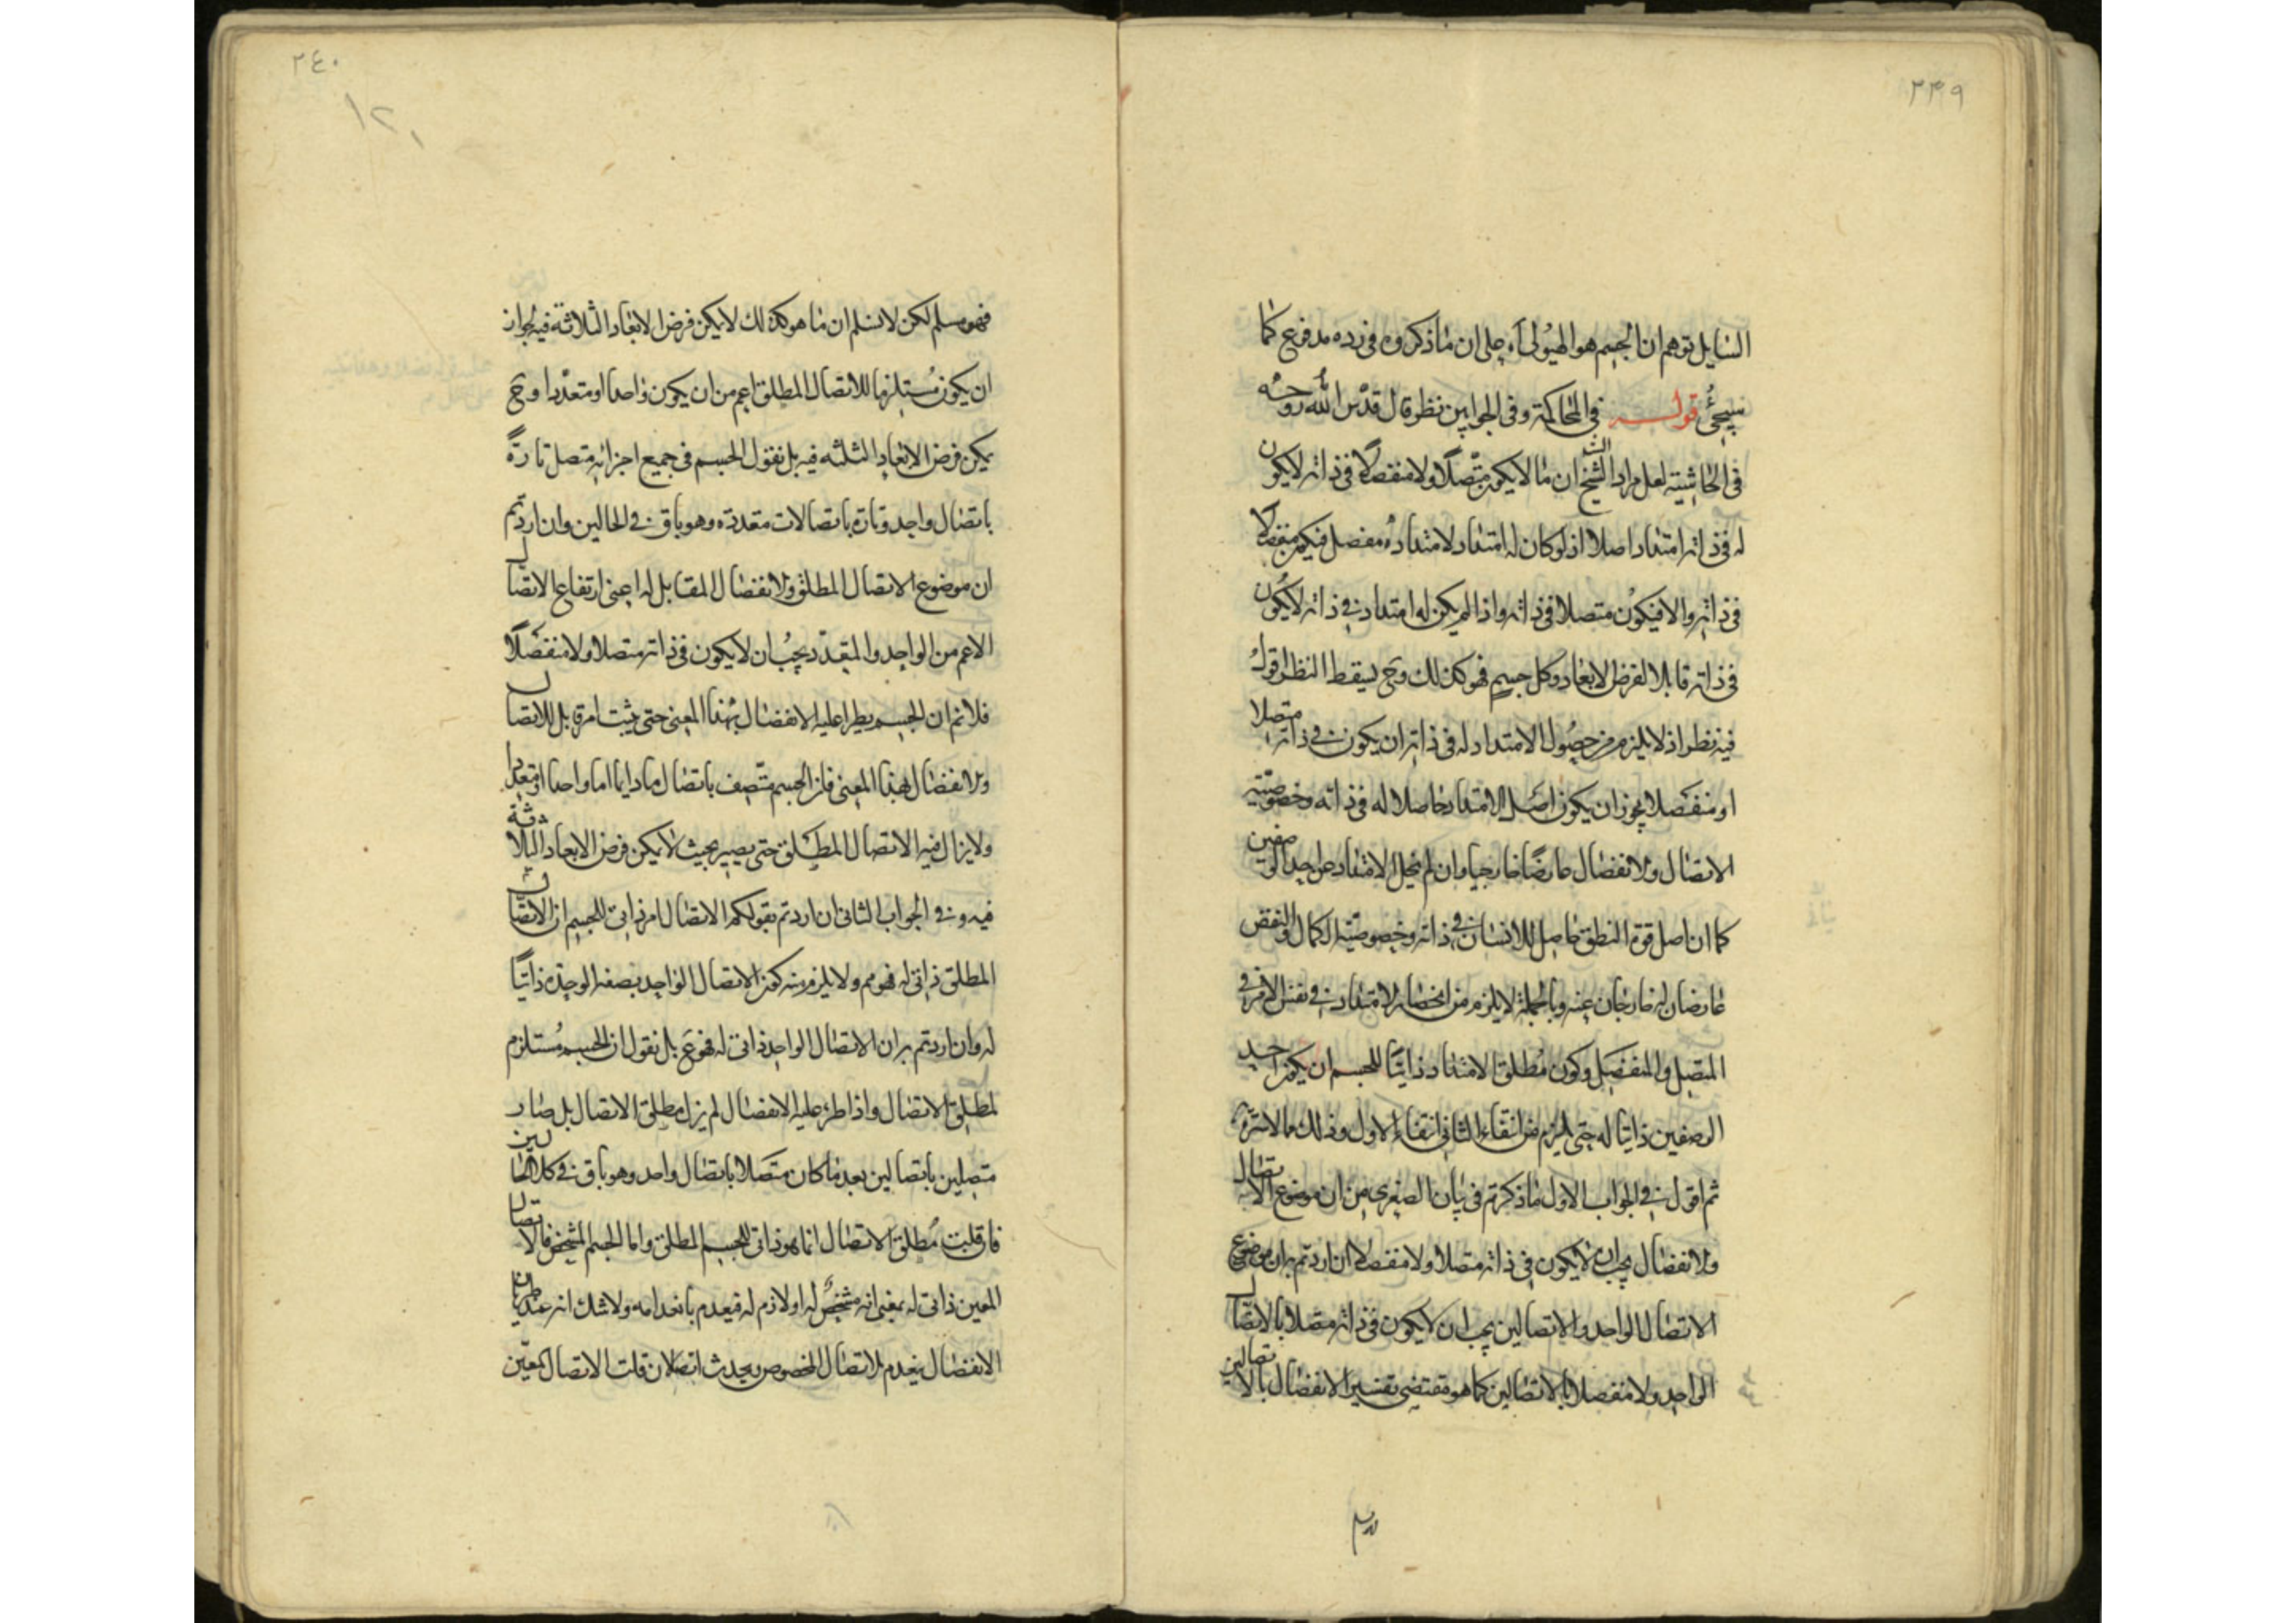 ٢٣٩
السایل توهم ان الجسم هو الهیولی اه علی ان ما ذکروه فی رده مدفوع کما
سیجئ قوله فی المحاکمة وفی الجوابین نظر قال قدس الله روحه
فی الحاشیته لعل مراد الشیخ ان ما لا یکون متصلا ولا منفصلا فی ذاته لا یکون
له فی ذاته امتداد اصلا اذ لو کان له امتداد لامتداده مفصل فیکون منفصلا
فی ذاته والا فیکون متصلا فی ذاته واذا لم یکن له امتداد فی ذاته لا یکون
فی ذاته قابلا لفرض الابعاد وکل جسم فهو کذلک وح یسقط النظر اقول
فیه نظر اذ لا یلزم من حصول الامتداد له فی ذاته ان یکون فی ذاته متصلا
او منفصلا یجوز ان یکون اصل الامتداد حاصلا له فی ذاته وخصوصیته
الاتصال والانفصال عارضا خارجیا وان لم یخل الامتداد عن احد الوصفین
کما ان اصل قوة النطق حاصل للانسان فی ذاته وخصوصیته الکمال والنقص
عارضان له خارجان عنه وبالجملة لا یلزم من انحصار الامتداد فی نفس الامر فی
المتصل والمنفصل وکون مطلق الامتداد ذاتیا للجسم ان یکون احد
الوصفین ذاتیا له حتی یلزم من انتفاء الثانی انتفاء الاول وذلک مما لا سترة
ثم اقول فی الجواب الاول ما ذکرتم فی بیان الصغری من ان موضوع الاتصال
والانفصال یجب ان لا یکون فی ذاته متصلا ولا منفصلا ان اردتم به ان موضوع
الاتصال الواحد والاتصالین یجب ان لا یکون فی ذاته متصلا بالاتصال
الواحد ولا منفصلا بالاتصالین کما هو مقتضی تفسیر الانفصال بالاتصالین
فهو مسلم
٢٤٠
١٢٠
فهو مسلم لکن لا نسلم ان ما هو کذلک لا یمکن فرض الابعاد الثلاثة فیه لجواز
ان یکون مستلزما للاتصال المطلق اعم من ان یکون واحدا او متعددا وح
یمکن فرض الابعاد الثلثه فیه بل نقول الجسم فی جمیع اجزائه متصل تارة
باتصال واحد وتارة باتصالات متعددة وهو باق فی الحالین وان اردتم
ان موضوع الاتصال المطلق والانفصال المقابل له اعنی ارتفاع الاتصال
الاعم من الواحد والمتعدد یجب ان لا یکون فی ذاته متصلا ولا منفصلا
فلا نم ان الجسم یطرا علیه الانفصال بهذا المعنی حتی یثبت امر قابل للاتصال
والانفصال بهذا المعنی فان الجسم متصف باتصال ما دایما اما واحدا او متعددا
ولا یزال فیه الاتصال المطلق حتی یصیر بحیث لا یمکن فرض الابعاد الثلاثة
فیه وفی الجواب الثانی ان اردتم بقولکم الاتصال امر ذاتی للجسم ان الاتصال
المطلق ذاتی له فهو مم ولا یلزم منه کون الاتصال الواحد بصفه الوحدة ذاتیا
له وان اردتم به ان الاتصال الواحد ذاتی له فهو مع بل نقول ان الجسم مستلزم
لمطلق الاتصال واذا طرء علیه الانفصال لم یزل مطلق الاتصال بل صار
متصلین باتصالین بعد ما کان متصلا باتصال واحد وهو باق فی کلا الحالین
فان قلت مطلق الاتصال انما هو ذاتی للجسم المطلق واما الجسم المشخص فالاتصال
المعین ذاتی له بمعنی انه مشخص له او لازم له فیعدم بانعدامه ولا شک انه عند طریان
الانفصال ینعدم الاتصال المخصوص ویحدث اتصالان قلت الاتصال المعین